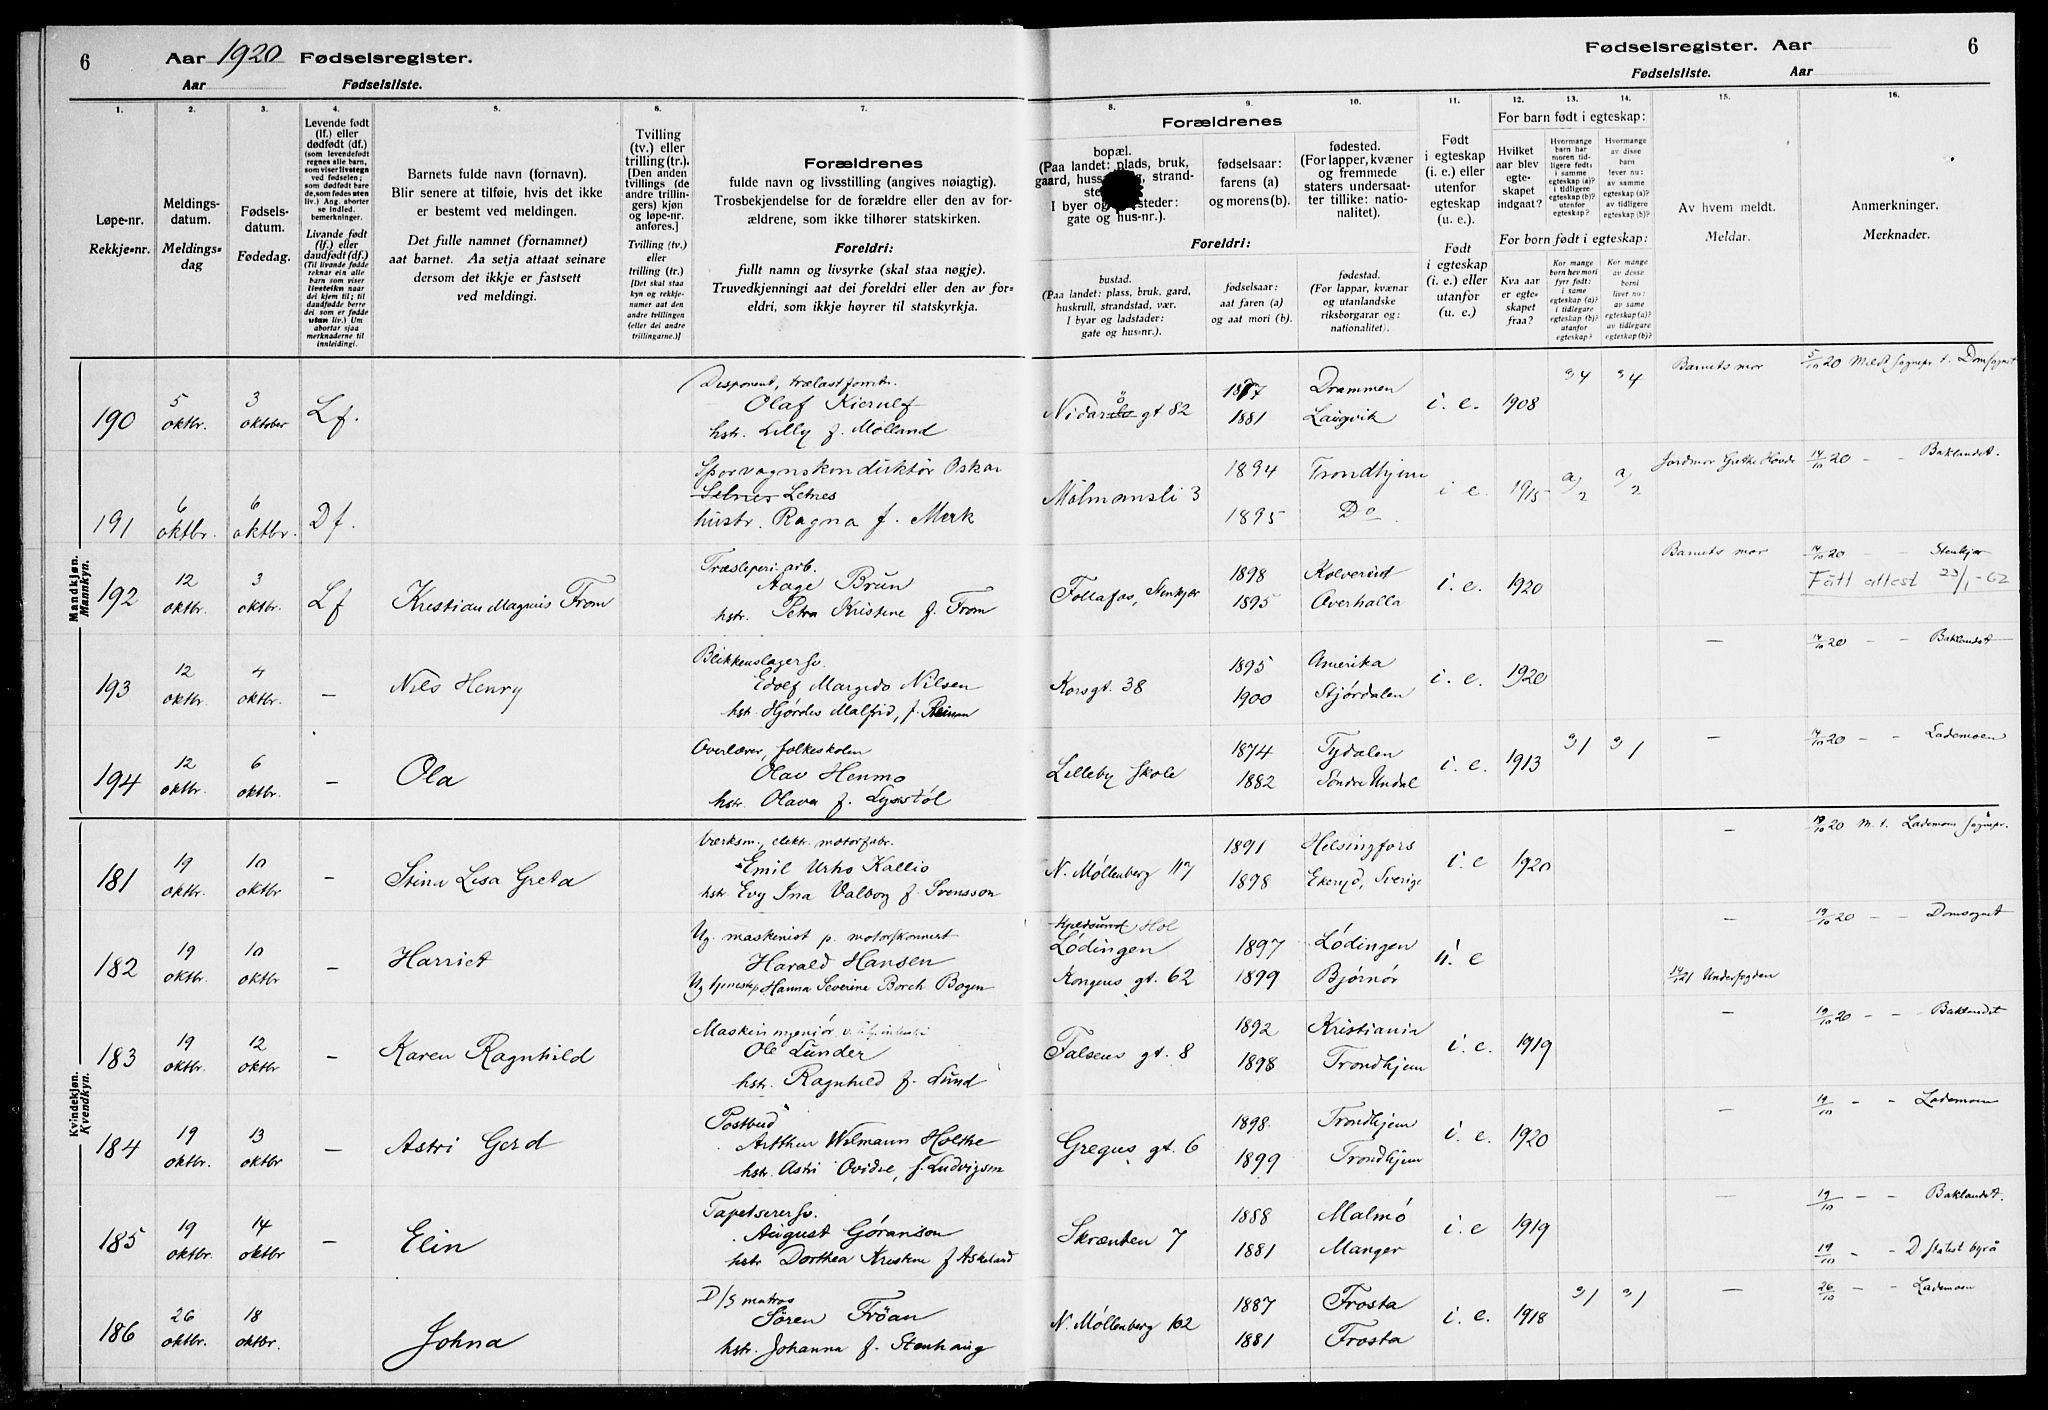 6 Aar 1920 Fødselsregister.
Aar Fødselsliste.
Fødselsregister. Aar 6
Fødselsliste. Aar
1. 2. 3. 4. 5. 6. 7. 8. 9. 10. 11. 12. 13. 14. 15. 16.
Løpe-nr.
Rekkje-nr.
Meldings-
datum.
Meldings-
dag
Fødsels-
datum.
Fødedag.
Levende født
(lf.) eller
dødfødt (df.)
(som levendefødt
regnes alle barn,
som viser livstegn
ved fødselen;
som dødfødt bare
de, som fødes uten
liv.) Ang. aborter
se indled.
bemerkninger.
Livande født
(lf.) eller
daudfødt (df.)
(Til livande fødde
reknar ein alle
barn som viser
livsteikn naar
dei kjem til; til
daudfødde berre
dei som er fødde
utan liv.) Um
abortar sjaa
merknaderne til
innleidingi.
Barnets fulde navn (fornavn).
Blir senere at tilføie, hvis det ikke
er bestemt ved meldingen.
Det fulle namnet (fornamnet)
aat barnet. Aa setja attaat seinare
dersom det ikkje er fastsett
ved meldingi.
Tvilling
(tv.) eller
trilling (tr.).
[Den anden
tvillings (de
andre trillin-
gers) kjøn
og løpe-nr.
anføres.]
Tvilling (tv.)
eller
trilling (tr.)
[Det skal staa
kyn og rekkje-
numer aat den
andre tvillingen
(eller dei andre
trillingarne.)]
Forældrenes
fulde navn og livsstilling (angives nøiagtig).
Trosbekjendelse for de forældre eller den av for-
ældrene, som ikke tilhører statskirken.
Foreldri:
fullt namn og livsyrke (skal staa nøgje).
Truvedkjenningi aat dei foreldri eller den av for-
eldri, som ikkje høyrer til statskyrkja.
Forældrenes
bopæl.
(Paa landet: plads, bruk,
gaard, strand-
I byer og
gate og hus-nr.).
Foreldri:
bustad.
(Paa landet: plass, bruk, gard,
huskrull, strandstad, vær.
I byar og ladstader:
gate og hus-nr.).
fødselsaar:
farens (a)
og morens (b).
fødselsaar:
aat faren (a)
og aat mori (b).
fødested.
(For lapper, kvæner
og fremmede
staters undersaat-
ter tillike: natio-
nalitet).
fødestad.
(For lappar, kvænar
og utanlandske
riksborgarar og:
nationalitet).
Født
i egteskap
(i. e.) eller
utenfor
egteskap
(u. e.).
Født
i egteskap
(i. e.) eller
utanfor
(u. e.)
For barn født i egteskap:
Hvilket
aar blev
egte-
skapet
indgaat?
Hvormange
barn har
moren tid-
ligere født:
i samme
egteskap (a)?
i tidligere
egteskap (b)?
utenfor
egteskap?
Hvormange
av disse
barn
lever nu:
av samme
egteskap (a)?
av tidligere
egteskap (b)?
For born født i egteskap:
Kva aar
er egte-
skapet
fraa?
Kor mange
born hev mori
fyrr født:
i same
egteskap (a)?
i tidlegare
egteskap (b)?
utanfor
egteskap?
Kor mange
av desse
borni
liver nu:
av same
egteskap (a)?
av tidlegare
egteskap (b)?
Av hvem meldt.
Meldar.
Anmerkninger.
Merknader.
Mandkjøn.
Mannkyn.
190 5 oktbr. 3 oktober Lf. Disponent, trælastforretn.
Olaf Kierulf
hstr. Lilly f. Mølland
Nidarö gt 82 1877 1881 Drammen i. e. 1908 3/4 3/4 Barnets mor 5/10 20 Meldt Sognepr. t. Domsognet
191 6 oktbr. 6 oktbr. Df. Sporvagnskonduktör Oskar
Letnes
hustr. Ragna f. Merk
Mølmansli 3 1894 1895 Trondhjem Do i e. 1915 a/2 a/2 Jordmor Grethe Hovde 14/10 20 - - Baklandet.
192 12 oktbr. 3 oktbr. Lf Kristian Magnus From
Træsliperiarb.
Aage Brun
hstr. Petra Kristine f. From
Follafos, Stenkjær 1898 1895 Kolvereid Overhalla i. e. 1920 Barnets mor 14/10 20 - - Stenkjær
Fått attest 23/1-62
193 12 oktbr. 4 oktbr. - Nils Henry
Blikkenslagersv.
Edolf Margido Nilsen
hstr. Hjørdis Malfrid, f.
Korsgt. 38 1895 1900 Amerika Stjørdalen i. e. 1920 - 14/10 20 - - Baklandet
194 12 oktbr. 6 oktbr. - Ola
Overlærer, folkeskolen
Olav Henmo
hstr. Olava f. Lysestøl
Lilleby Skole 1874 1882 Tydalen Söndre Undal i. e. 1913 3/1 3/1 - 14/10 20 - - Lademoen
Kvindekjøn.
Kvendkyn.
181 19 oktbr. 10 oktbr - Stina Lisa Greta
Værksm., elekt. motorfabr.
Emil Urho Kallio
hstr Evy Ina Valborg f. Svensson
N. Møllenberg 117 1891 1898 Helsingfors Ekeryd, Sverige i. e 1920 - 19/10 20 M. t. Lademoen Sognepr.
182 19 oktbr. 10 oktbr. - Harriet
Ug. maskinist p. motorskonnert
Harald Hansen
Ug tjenestep. Hanna Severine Borch Bogen
Kjeldsund Hol
Lödingen
Kongens gt. 62 1897 1899 Lödingen Bjørnør u. e - 19/10 20 - - Domsognet
Undersøgden
183 19 oktbr. 12 oktbr - Karen Ragnhild
Maskiningeniør
Ole Lunder
hstr. Ragnhild f. Lund
Falsens gt. 8 1892 1898 Kristiania Trondhjem i. e. 1919 - 19/10 20 - - Baklandet
184 19 oktbr. 13 oktbr - Astri Gerd
Postbud
Arthur Wilmann Holthe
hstr. Astri Ovidie, f. Ludvigsen
Gregus gt. 6 1898. 1899 Trondhjem Trondhjem i. e. 1920 - 19/10 - - Lademoen
185 19 oktbr. 14 oktbr - Elin
Tapetserersv.
August Göranson
hstr Dorthea Kristine f Askeland
Skrænten 7 1888 1881 Malmö Manger i. e 1919 - 19/10 - - Baklandet.
19/10 - - D. Statist byrå
186 26 oktbr. 18 oktbr. - Johna
D/S matros
Sören Fröan
hstr. Johanna f. Stenhaug
N. Møllenberg 102 1887 1881 Frosta Frosta i. e. 1918 3/1 3/1 - 26/10 - - Lademoen